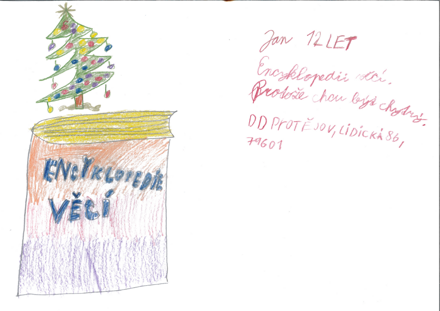 ENCYKLOPEDIE
VĚCÍ
Jan 12 LET
Encyklopedii věcí.
Protože chou být chytrý.
DD PROTĚJOV, LIDICKÁ 86,
79601